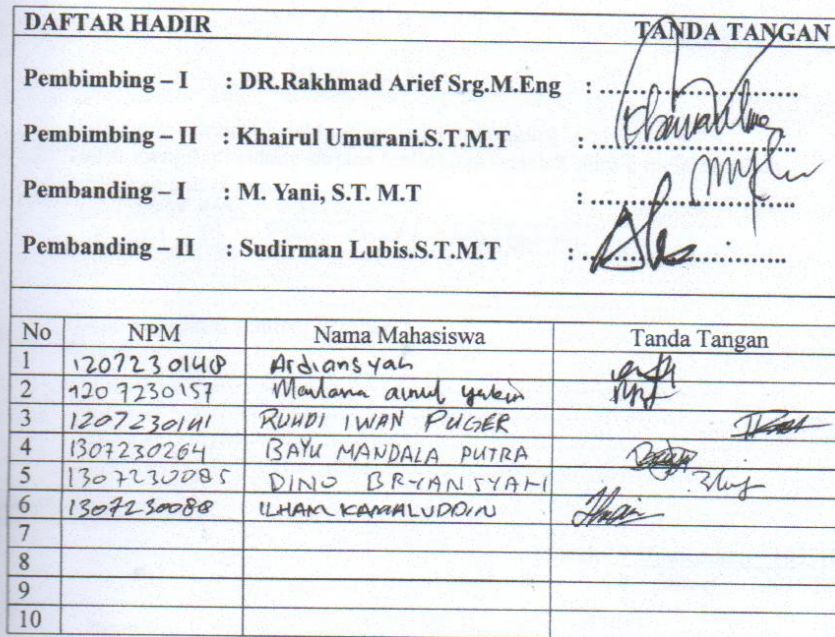 DAFTAR HADIR TANDA TANGAN
Pembimbing – I : DR.Rakhmad Arief Srg.M.Eng : ....................................
Pembimbing – II : Khairul Umurani.S.T.M.T : ....................................
Pembanding – I : M. Yani, S.T. M.T : ....................................
Pembanding – II : Sudirman Lubis.S.T.M.T : ....................................
No NPM Nama Mahasiswa Tanda Tangan
1 1207230148 Ardiansyah
2 1207230157 Maulana ainul yakin
3 1207230141 RUHDI IWAN PUGER
4 1307230264 BAYU MANDALA PUTRA
5 1307230085 DINO BRYANSYAH
6 1307230088 ILHAM KAMALUDDIN
7
8
9
10